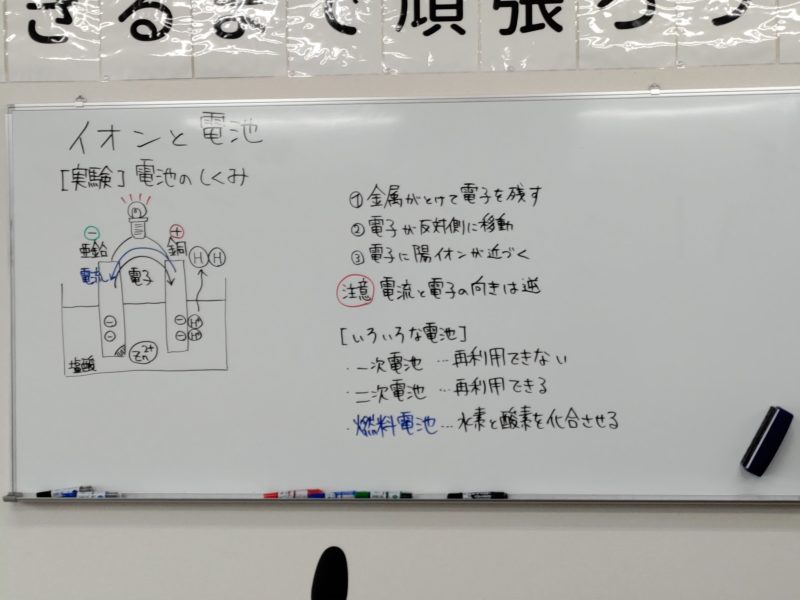 きるまで頑張ろう
イオンと電池
[実験] 電池のしくみ
⊖
⊕
亜鉛
銅
電流
電子
H H
⊖
⊖
⊖ H⁺
⊖ H⁺
Zn²⁺
塩酸
① 金属がとけて電子を残す
② 電子が反対側に移動
③ 電子に陽イオンが近づく
注意 電流と電子の向きは逆
[いろいろな電池]
・一次電池 …再利用できない
・二次電池 …再利用できる
・燃料電池…水素と酸素を化合させる